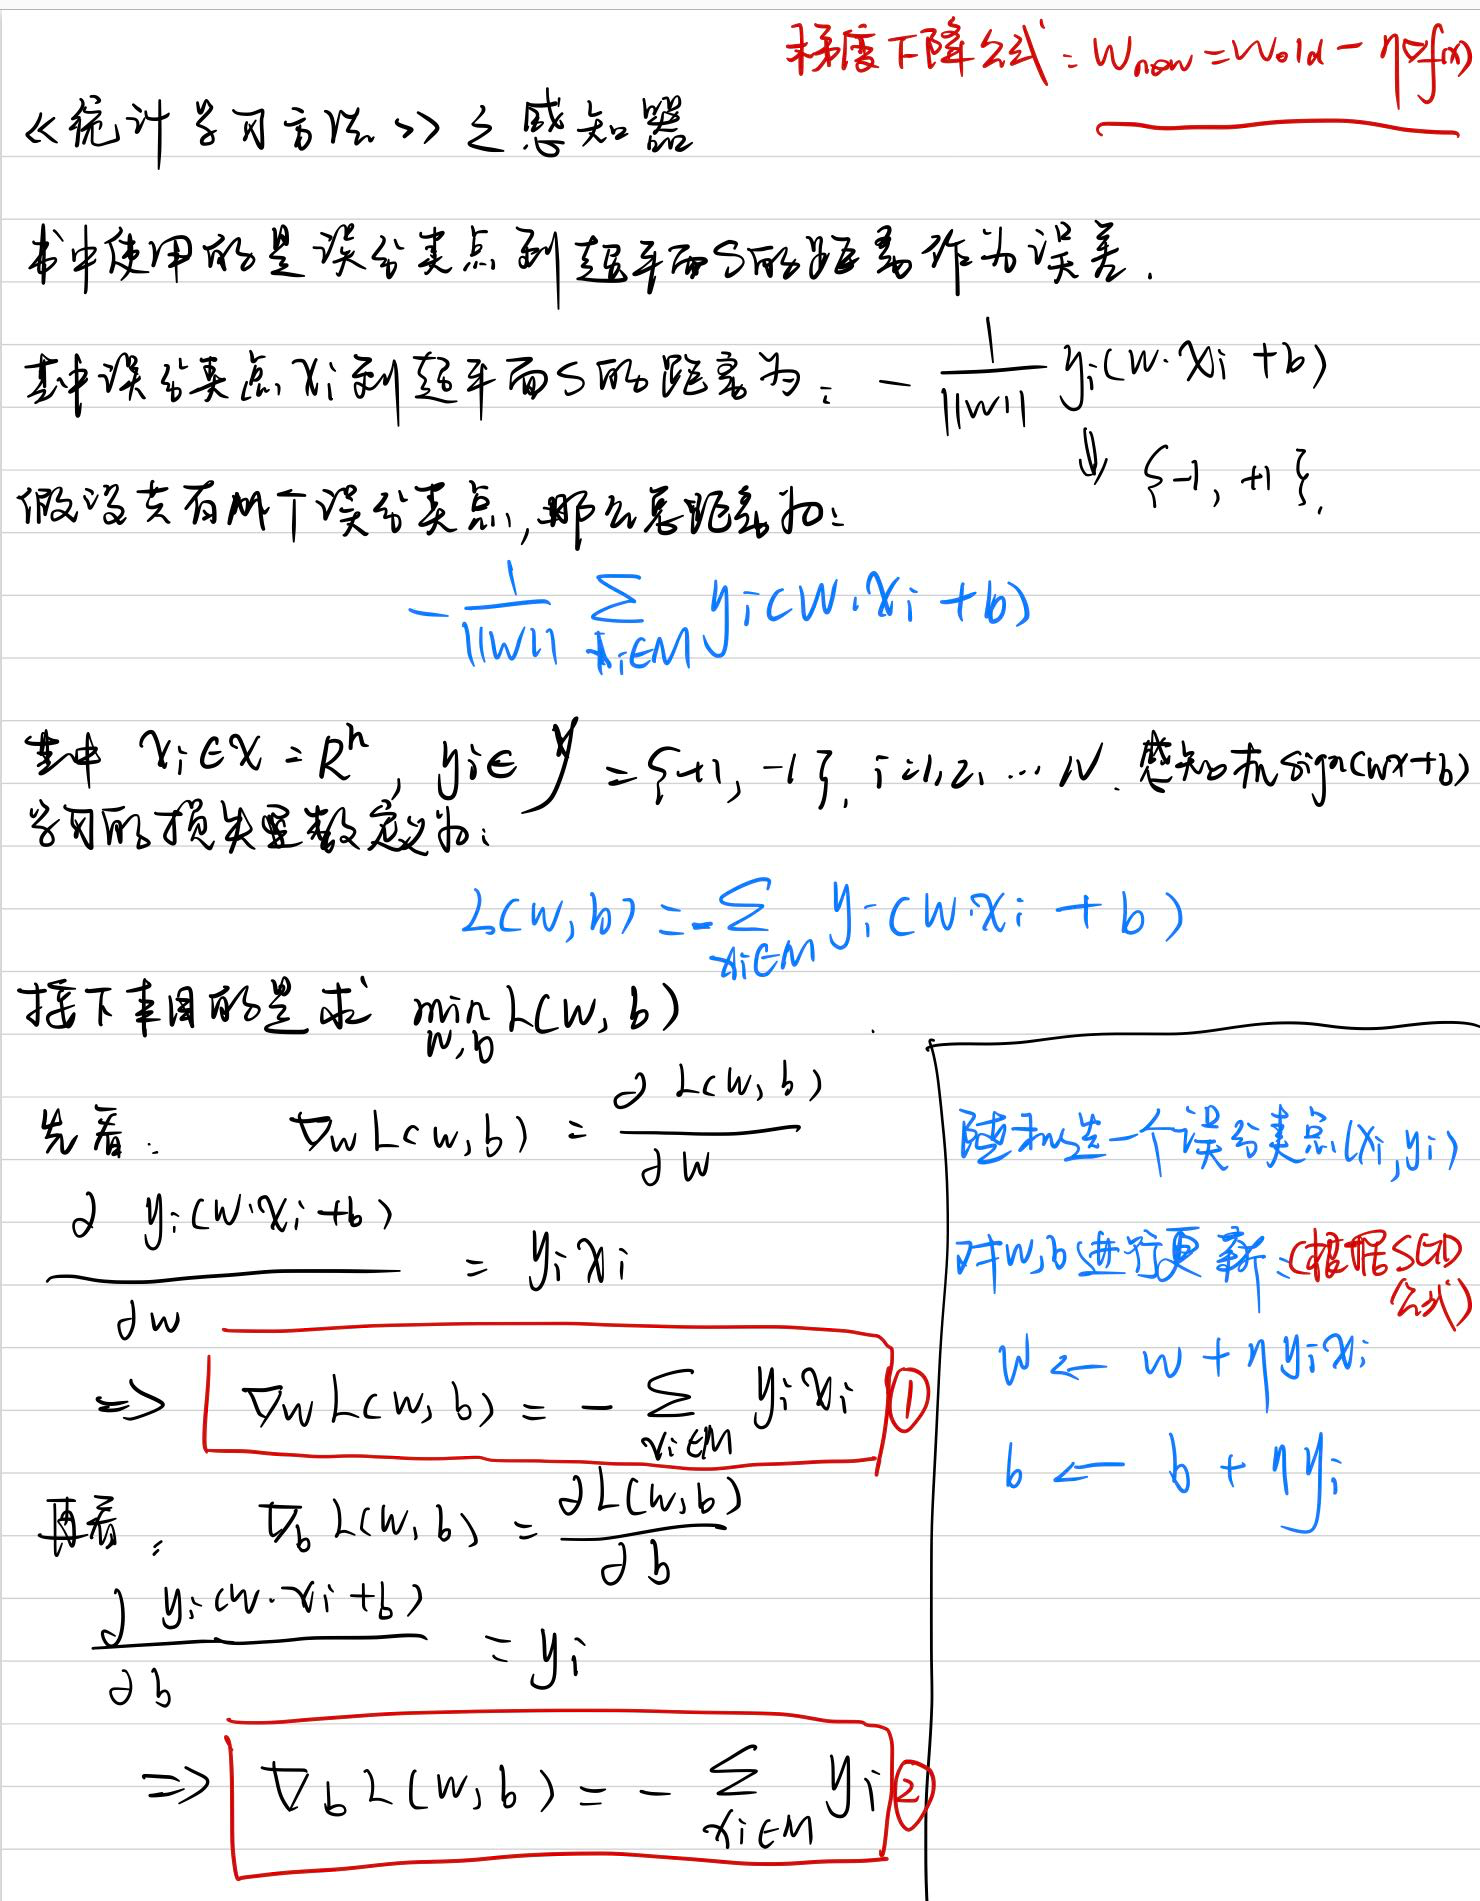 梯度下降公式：Wnew = Wold − η∇f(x)
《统计学习方法》之感知器
书中使用的是误分类点到超平面S的距离作为误差.
其中误分类点xi到超平面S的距离为： − 1/||w|| yi(w·xi + b)
⇓ {-1, +1}.
假设共有M个误分类点,那么总距离为：
− 1/||w|| ∑xi∈M yi(w·xi + b)
其中 xi∈X = Rⁿ, yi∈Y = {+1, -1}, i=1,2, … N. 感知机sign(wx+b)
学习的损失函数定义为：
L(w, b) = -∑xi∈M yi(w·xi + b)
接下来目的是求 min w,b L(w, b)
先看： ∇w L(w, b) = ∂L(w, b)/∂w
∂ yi(w·xi+b)/∂w = yi xi
⇒ ∇w L(w, b) = − ∑xi∈M yi xi ①
再看： ∇b L(w, b) = ∂L(w, b)/∂b
∂ yi(w·xi+b)/∂b = yi
⇒ ∇b L(w, b) = − ∑xi∈M yi ②
随机选一个误分类点(xi, yi)
对w,b进行更新：(根据SGD
公式)
w ← w + η yi xi
b ← b + η yi